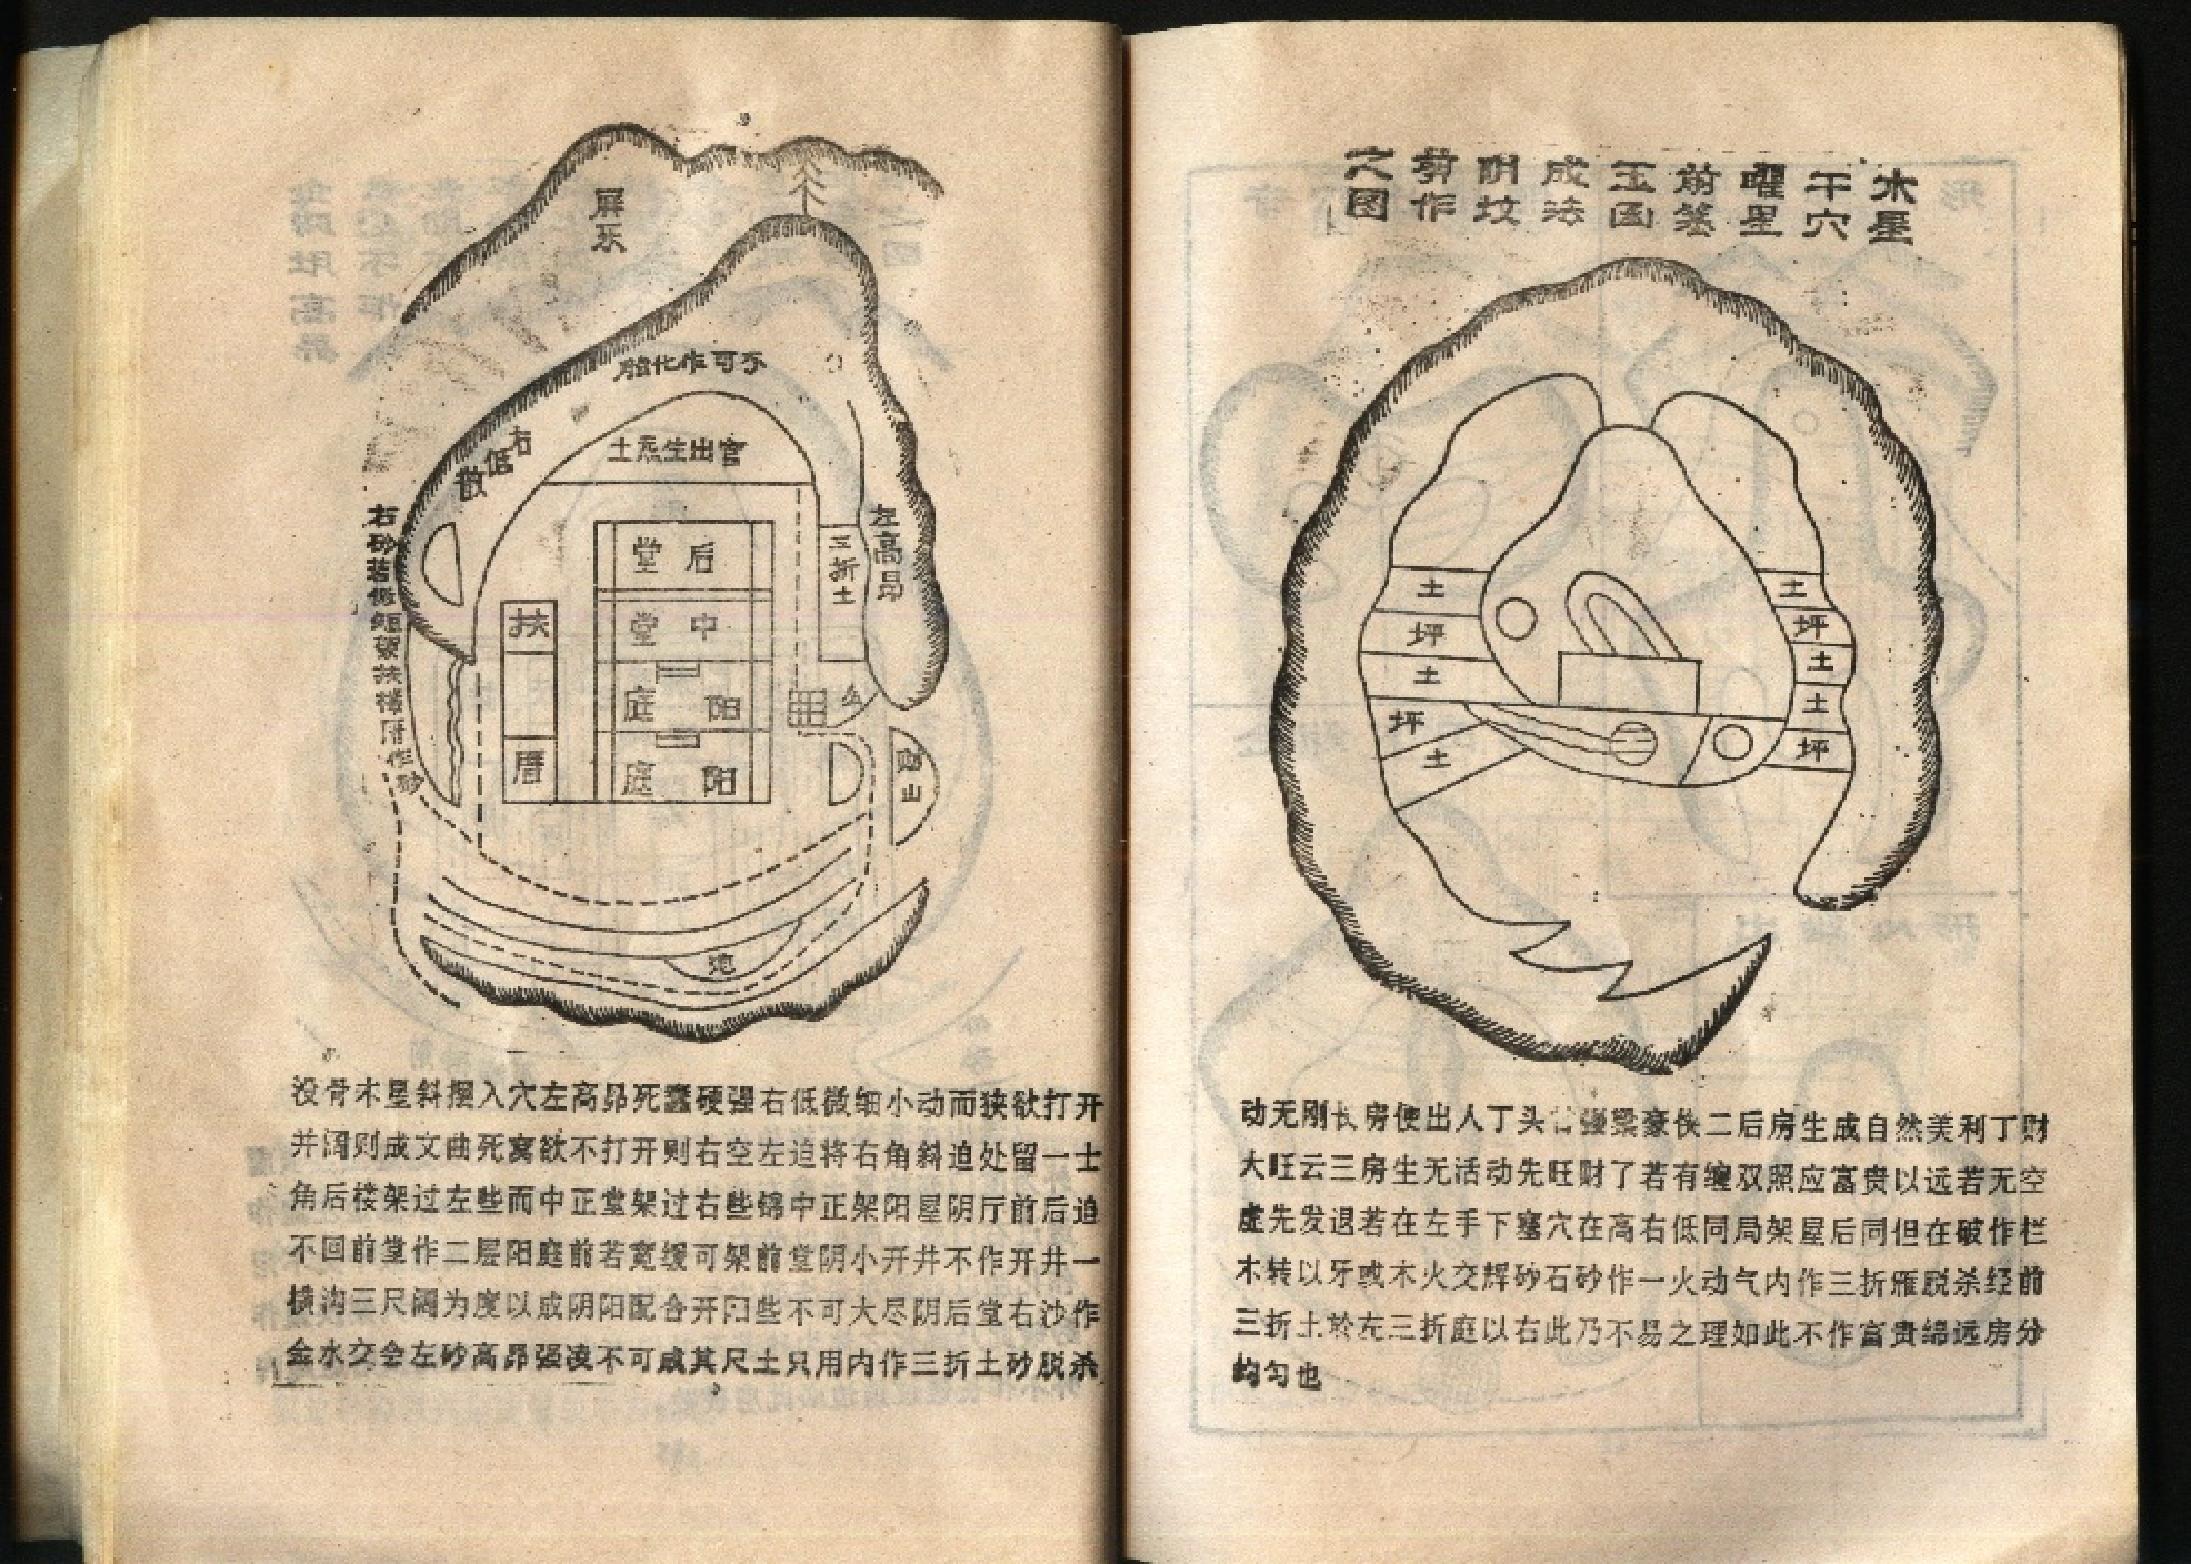 屏
土炁生出官
右低微
左高昂
三折土
堂 后
堂 中
庭 阳
庭 阳
扶
厝
池
没骨木星斜摆入穴左高昂死蠢硬强右低微细小动而狭欲打开
并阔则成文曲死窝欲不打开则右空左迫将右角斜迫处留一士
角后楼架过左些而中正堂架过右些锦中正架阳屋阴厅前后迫
不回前堂作二层阳庭前若宽缓可架前堂阴小开井不作开井一
横沟三尺阔为度以成阴阳配合开阳些不可大尽阴后堂右沙作
金水交会左砂高昂强凌不可成其尺土只用内作三折土砂脱杀
木星
干穴
曜星
前
玉函
成法
阴坟
剪作
之图
土
坪
土
坪
土
土
坪
土
土
坪
动无刚长房便出人丁头强梁豪侠二后房生成自然美利丁财
大旺云三房生无活动先旺财了若有缠双照应富贵以远若无空
虚先发退若在左手下塞穴在高右低同局架屋后同但在破作栏
木转以牙或木火交辉砂石砂作一火动气内作三折雁脱杀经前
三折土於左三折庭以右此乃不易之理如此不作富贵绵远房分
均匀也